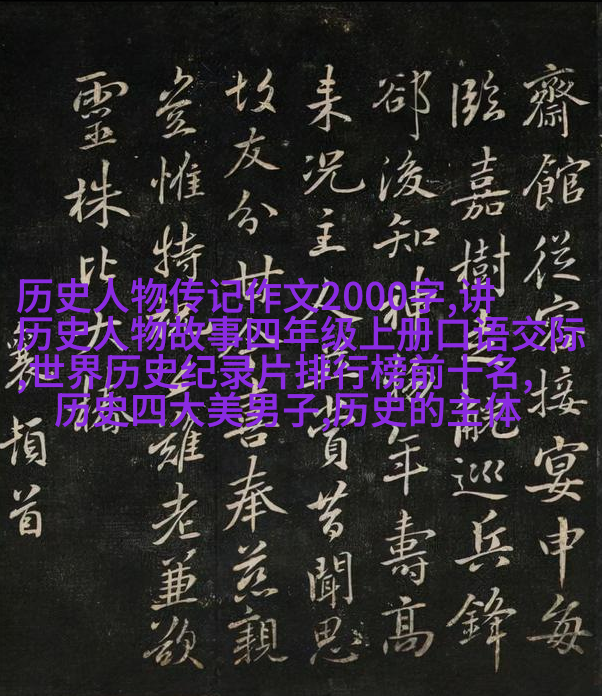 历史人物传记作文2000字,讲
历史人物故事四年级上册口语交际
,世界历史纪录片排行榜前十名,
历史四大美男子,历史的主体
齋館從容接宴申每
臨嘉樹巡兵鋒
郤後知神年壽高
来況主人昔聞思
故友分世喜奉慈親
豈惟特難老兼欲
靈株比大椿
襄頓首